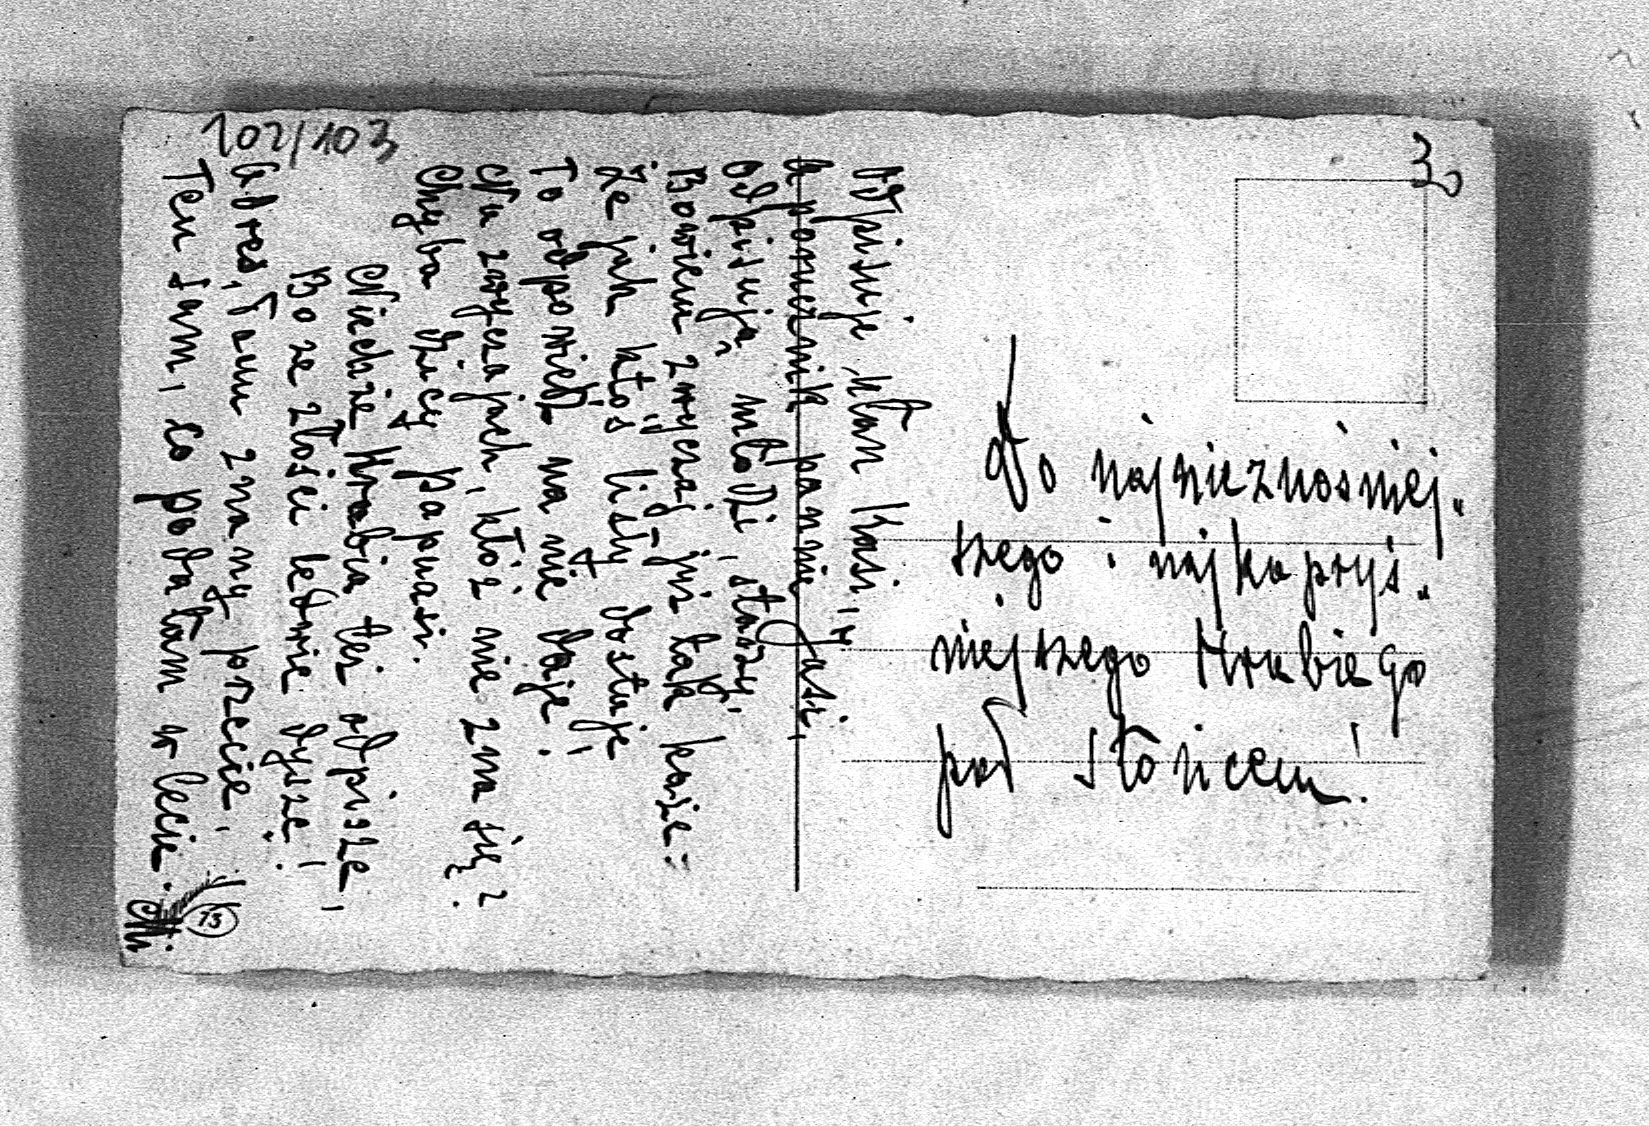 102/103
30
Odpisuje ułan Kasi,
A porucznik pannie Jasi,
Odpisują młodzi, starzy,
Bowiem zwyczaj już tak każe:
Że jak ktoś listy dostaje
To odpowiedź na nie daje.
Na zwyczajach, któż nie zna się?
Chyba dzicy papuasi.
Niechże Hrabia też odpisze,
Bo ze złości ledwie dyszę!
Adres, Panu znany przecie,
Ten sam, co podałam w lecie.
13
Do najnieznośniej-
szego i najkapryś-
niejszego Hrabiego
pod słońcem!